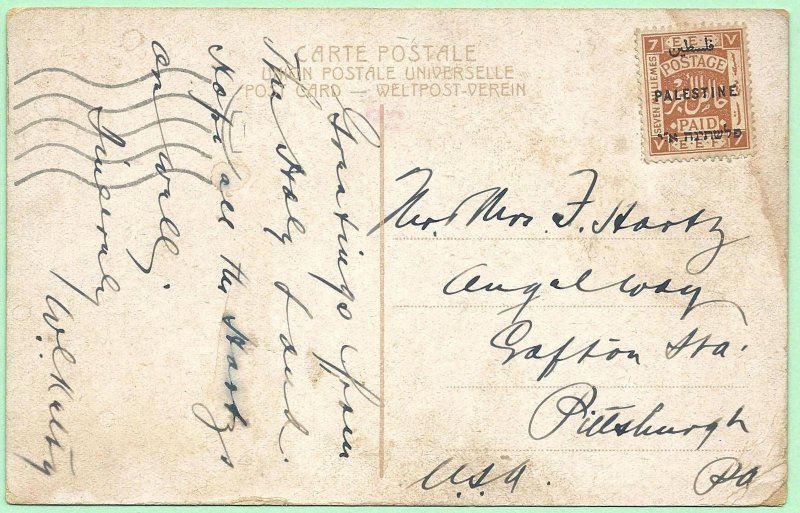 CARTE POSTALE
UNION POSTALE UNIVERSELLE
POST CARD — WELTPOST-VEREIN
Greetings from
The Holy Land.
Hope all the Hartzs
are well.
Sincerely
7 E.E.F. ٧
POSTAGE
فلسطين
PALESTINE
SEVEN MILLIEMES
PAID
פלשתינה א״י
٧ E.E.F. 7
Mr. Mrs. F. Hartz
Angel Way
Grafton Sta.
Pittsburgh
U.S.A. Pa